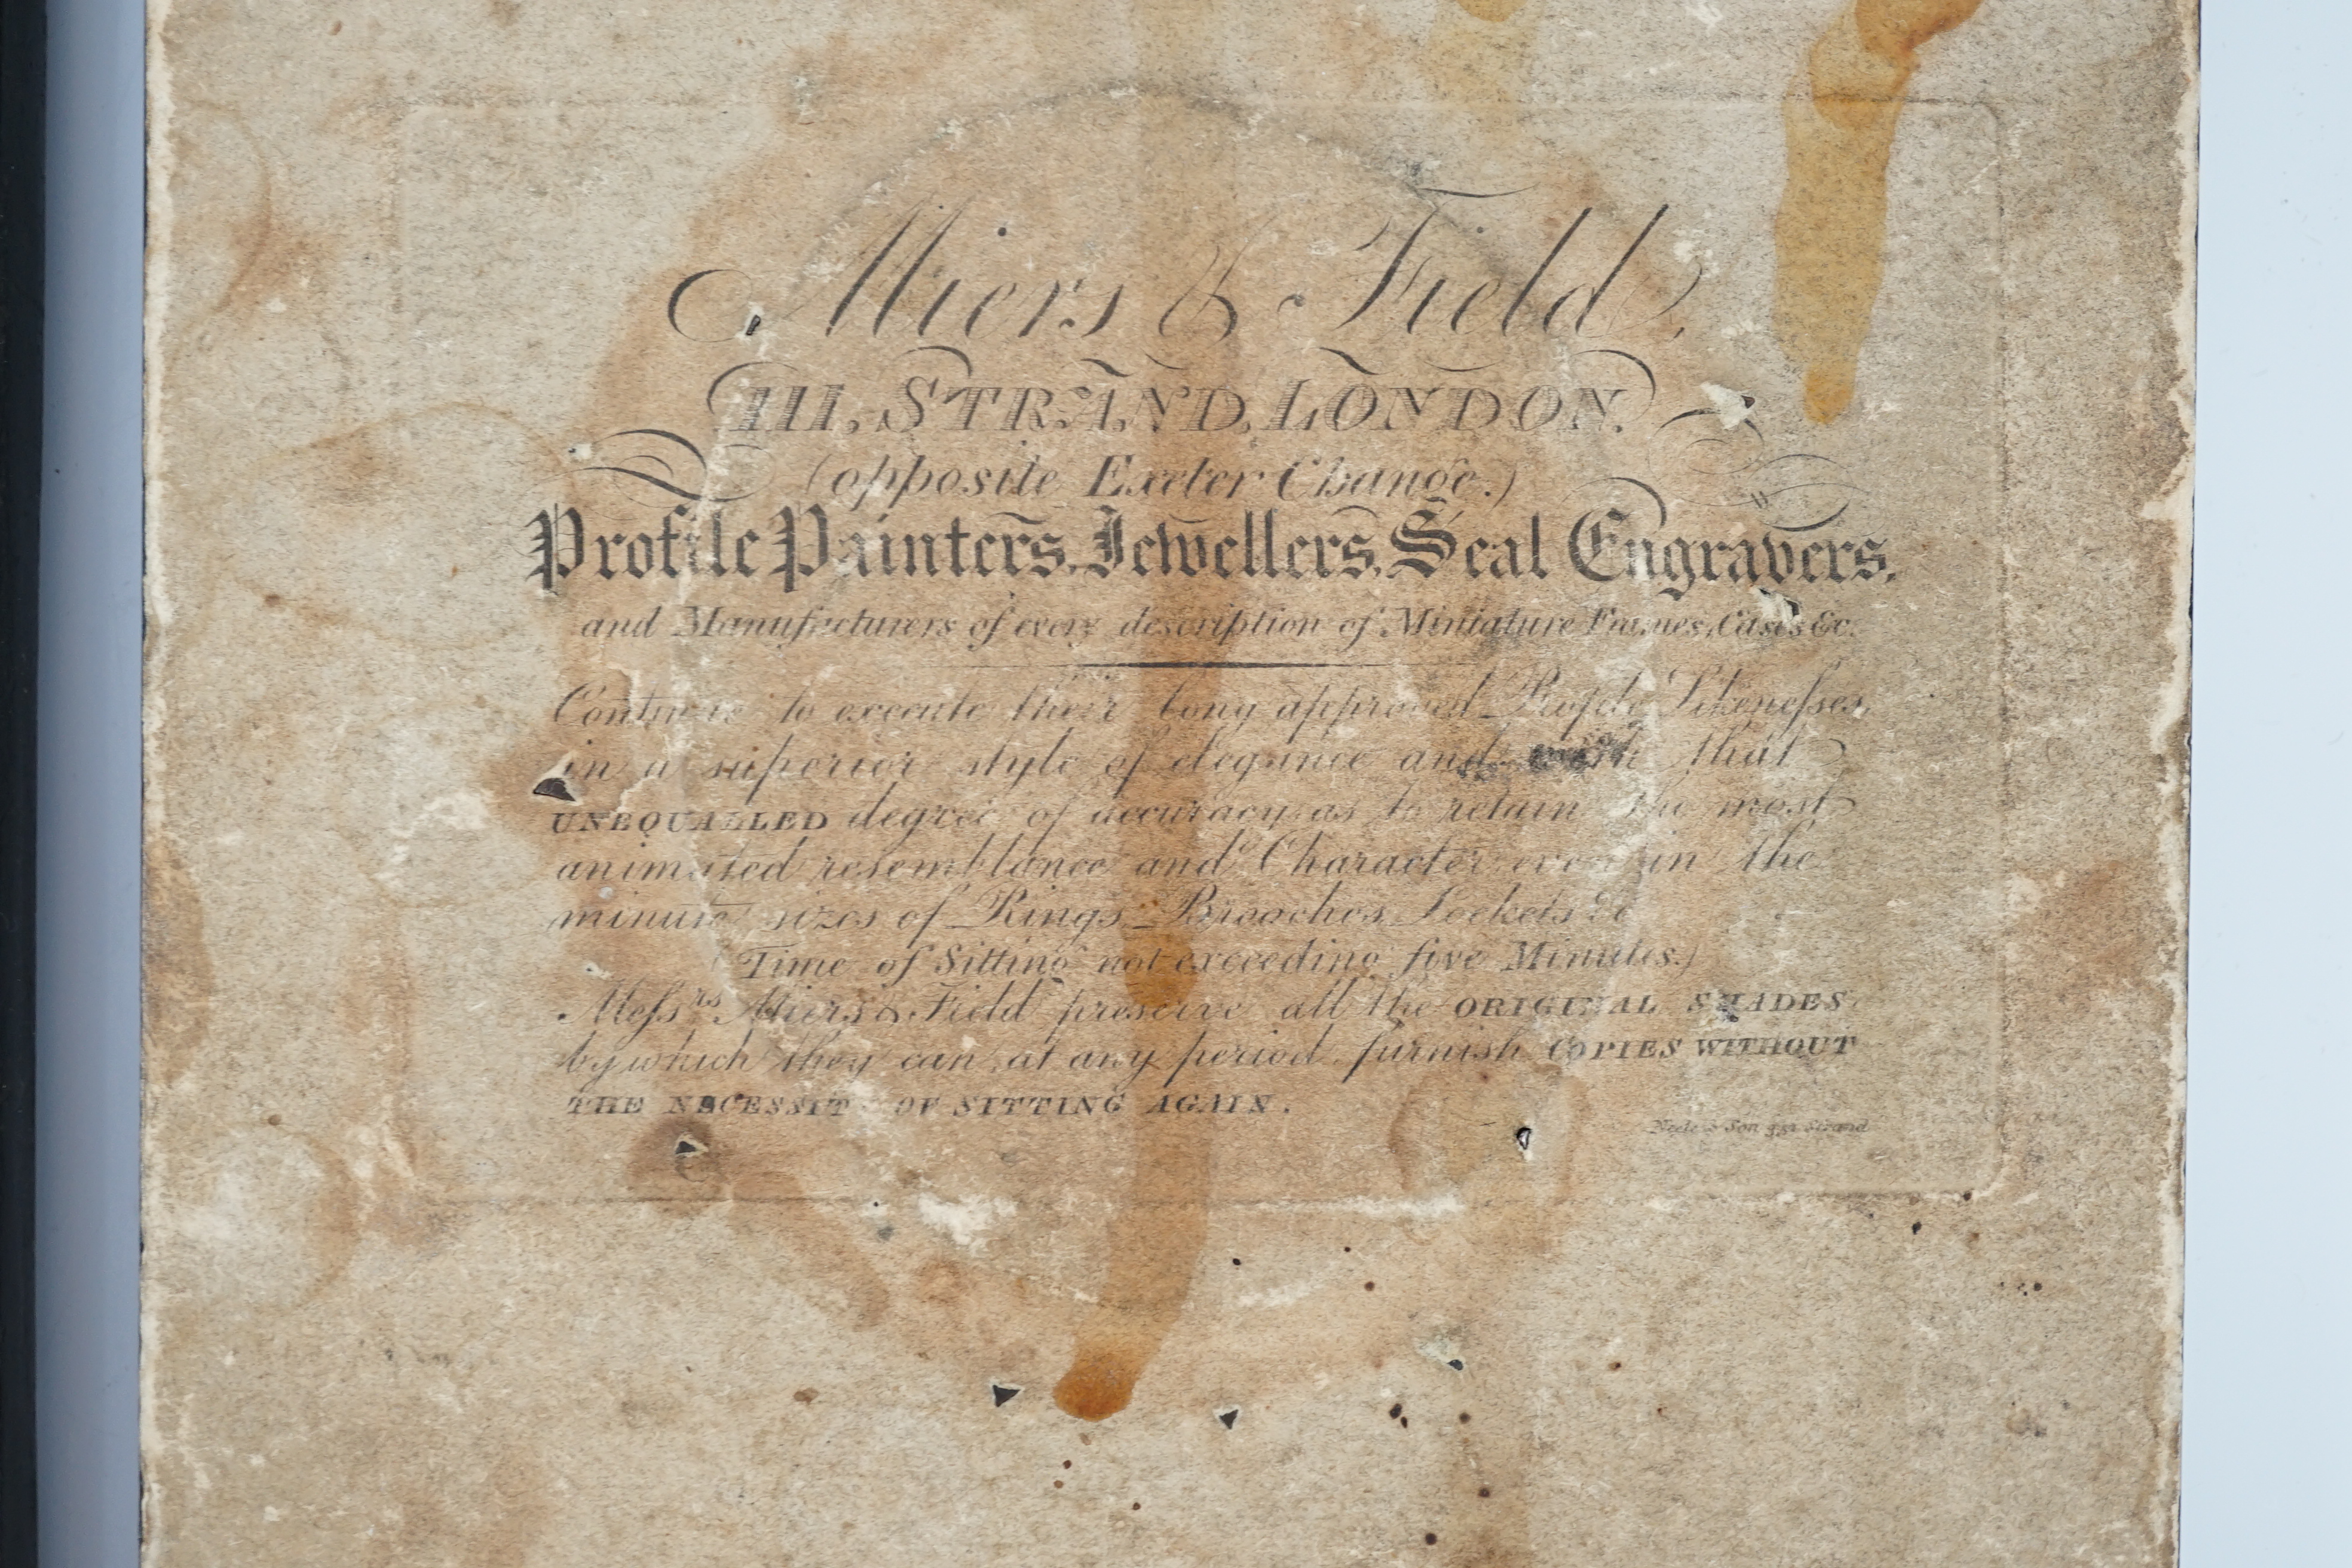 Miers & Field,
111, STRAND, LONDON.
(opposite Exeter Change.)
Profile Painters, Jewellers, Seal Engravers,
and Manufacturers of every description of Miniature Frames, Cases &c.
Continue to execute their long approved Profile Likenesses,
in a superior style of elegance and with that
UNEQUALLED degree of accuracy as to retain the most
animated resemblance and Character even in the
minute sizes of Rings, Broaches, Lockets &c
(Time of Sitting not exceeding five Minutes.)
Messrs. Miers & Field preserve all the ORIGINAL SHADES
by which they can at any period furnish COPIES WITHOUT
THE NECESSITY OF SITTING AGAIN.
Neele & Son Strand